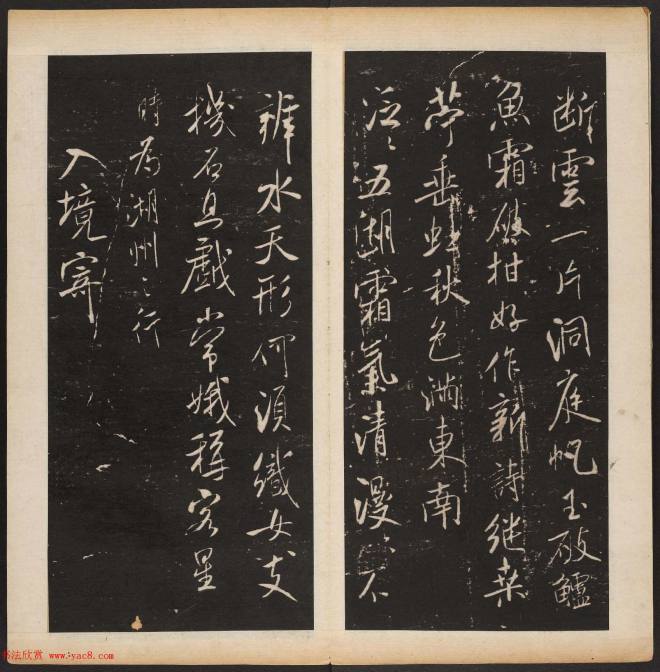 断雲一片洞庭帆玉破鱸
魚霜破柑好作新詩継桒
苧垂虹秋色滿東南
泛〻五湖霜氣清漫〻不
辨水天形何須織女支
機石且戲常娥稱客星
時為湖州之行
入境寄
书法欣赏 www.yac8.com